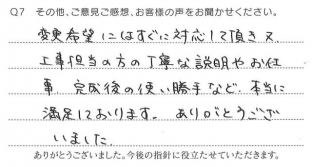 Q7 その他、ご意見ご感想、お客様の声をお聞かせください。
変更希望にはすぐに対応して頂き又、
工事担当の方の丁寧な説明やお仕
事、完成後の使い勝手など、本当に
満足しております。ありがとうござ
いました。
ありがとうございました。今後の指針に役立たせていただきます。